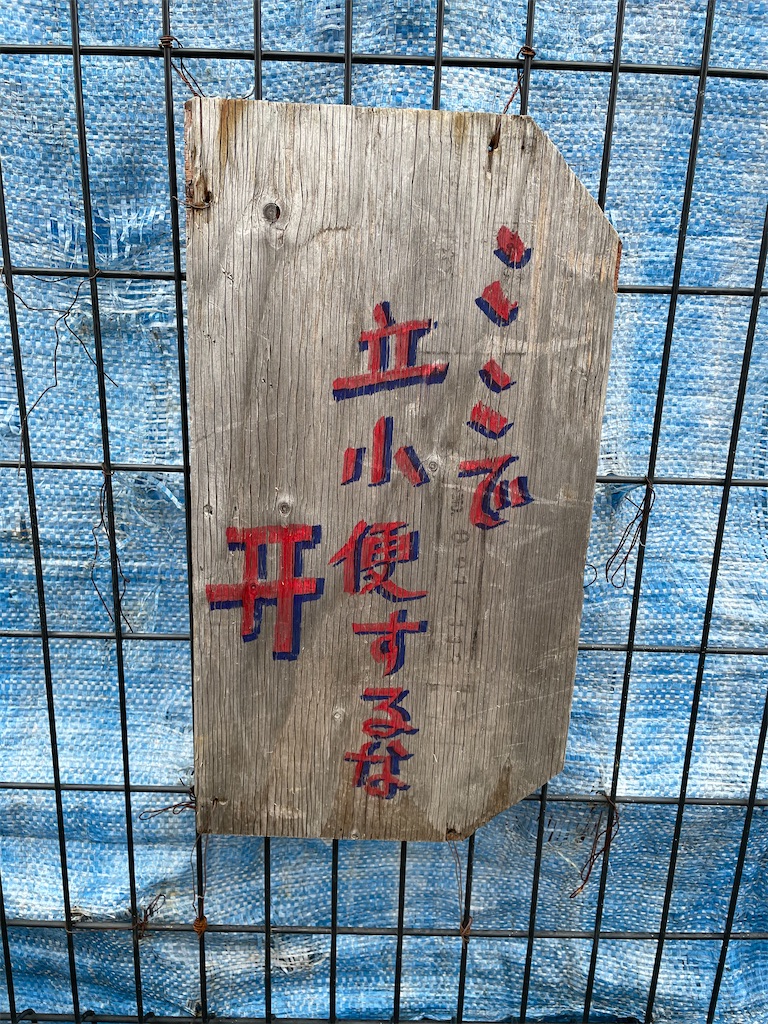 ここで
立小便するな
开